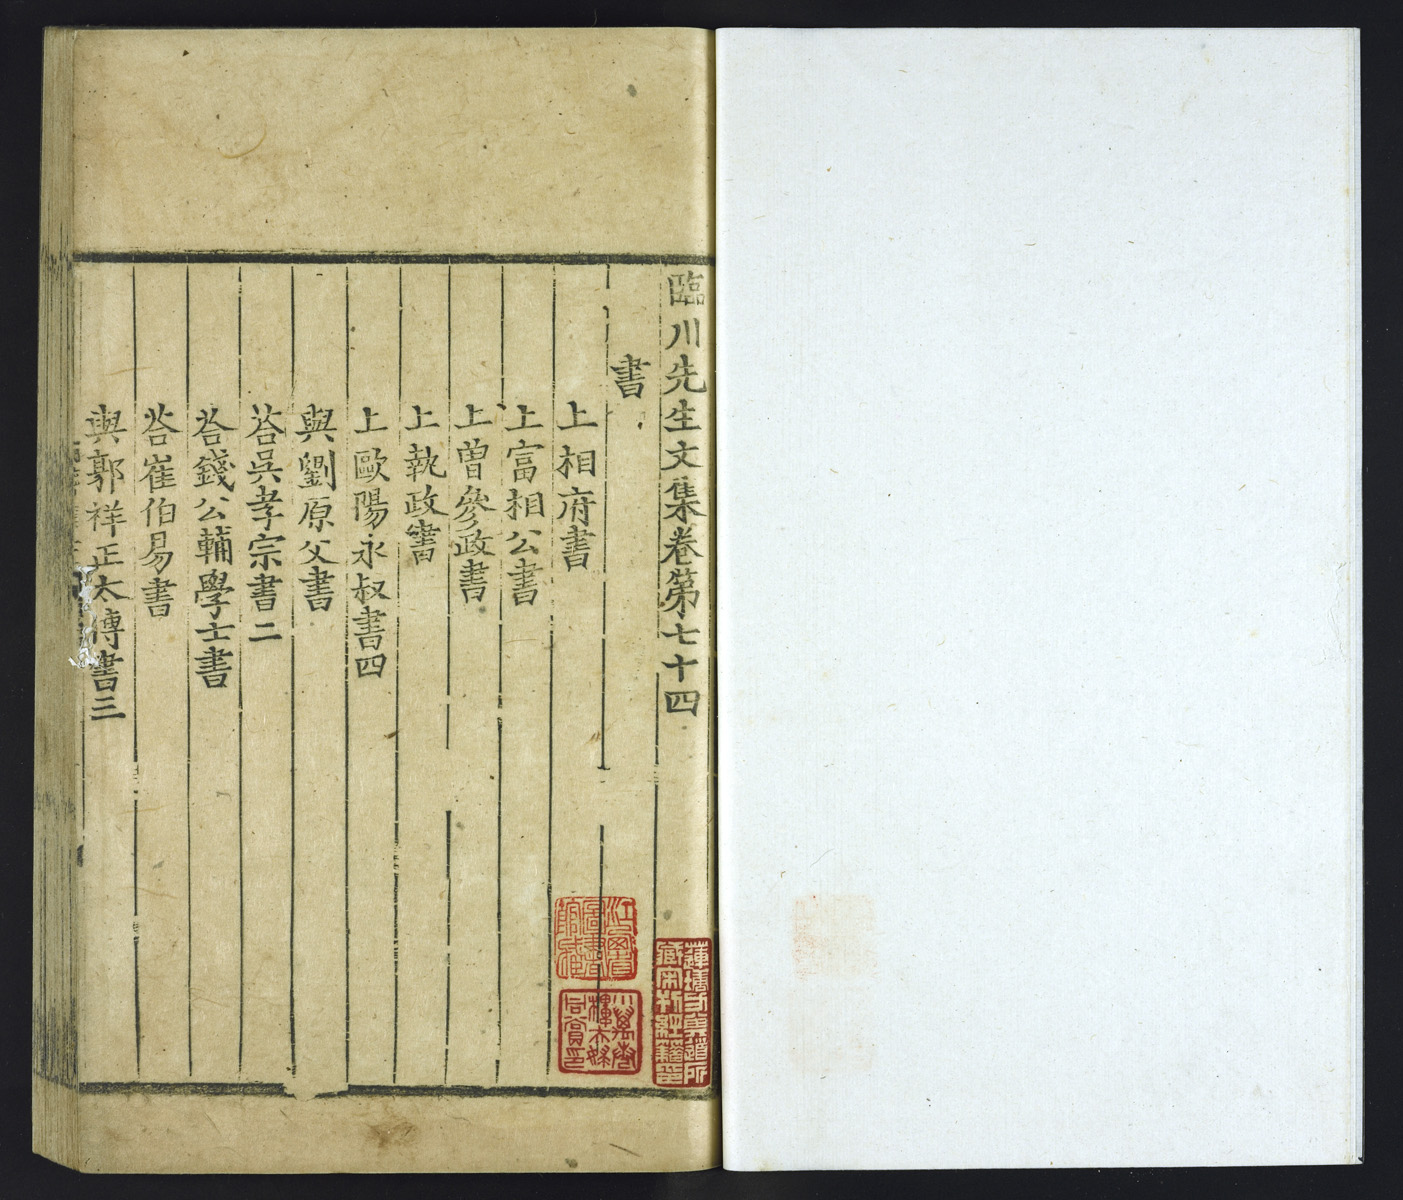 臨川先生文集卷第七十四
書
上相府書
上富相公書
上曾參政書
上執政書
上歐陽永叔書四
與劉原父書
荅吳孝宗書二
荅錢公輔學士書
荅崔伯易書
與郭祥正太博書三